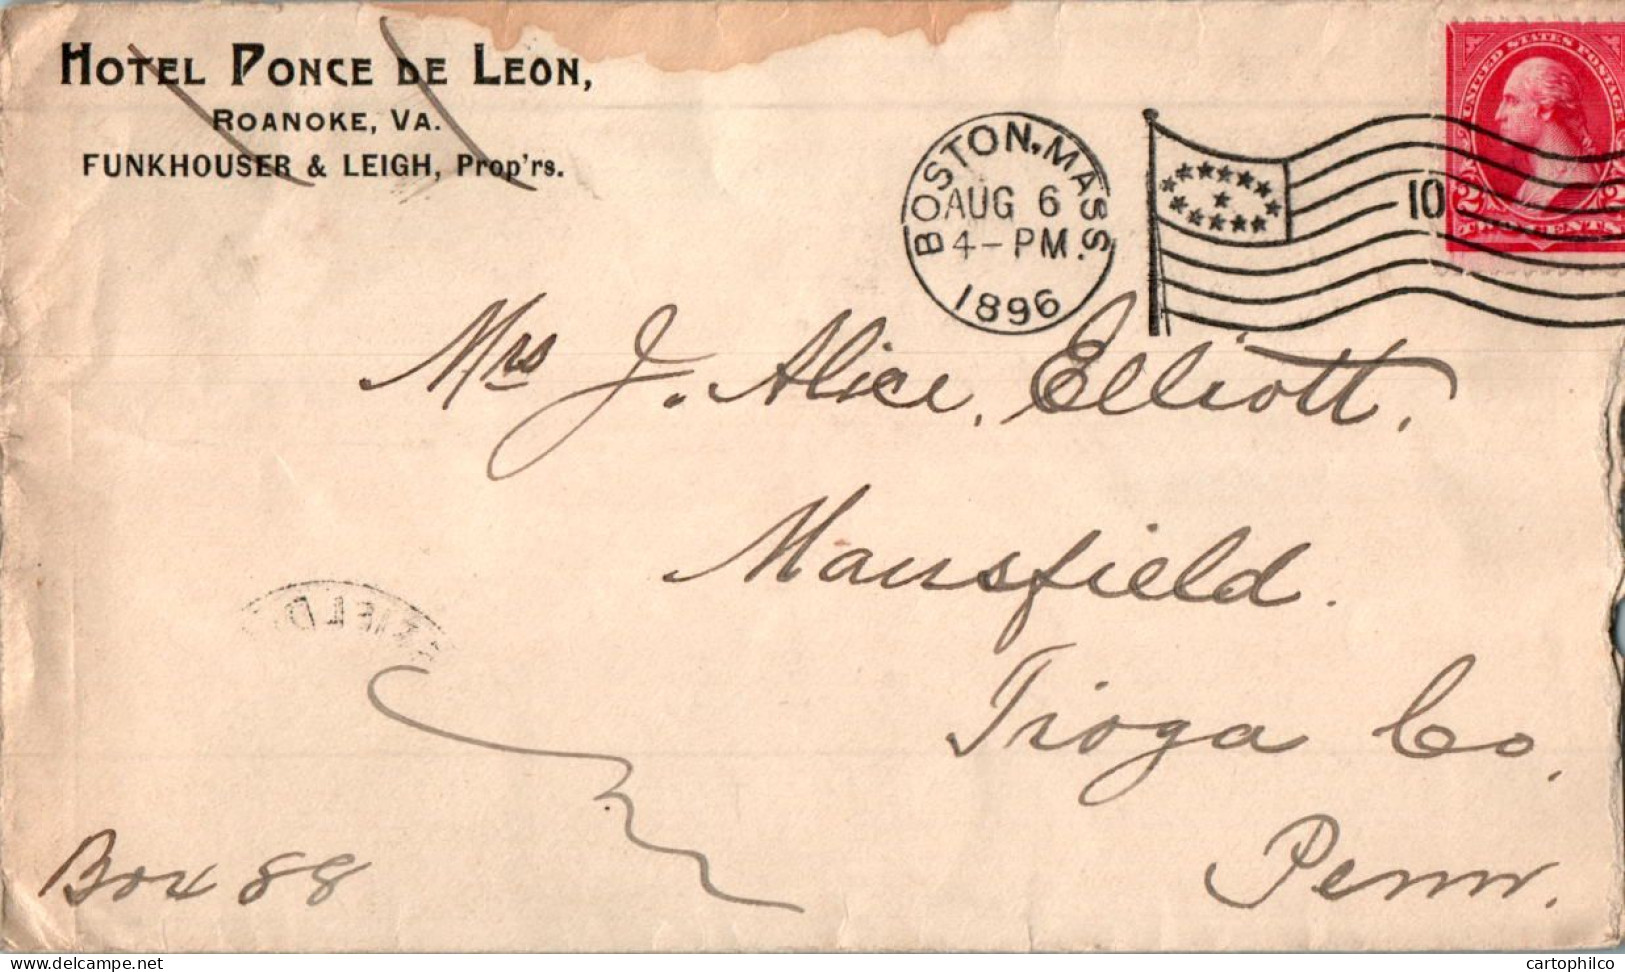 HOTEL PONCE DE LEON,
ROANOKE, VA.
FUNKHOUSER & LEIGH, Prop'rs.
BOSTON, MASS.
AUG 6
4-PM
1896
10
UNITED STATES POSTAGE
2 2
TWO CENTS
Mrs J. Alice, Elliott,
Mansfield.
Tioga Co,
Penn.
Box 88
www.delcampe.net
cartophilco